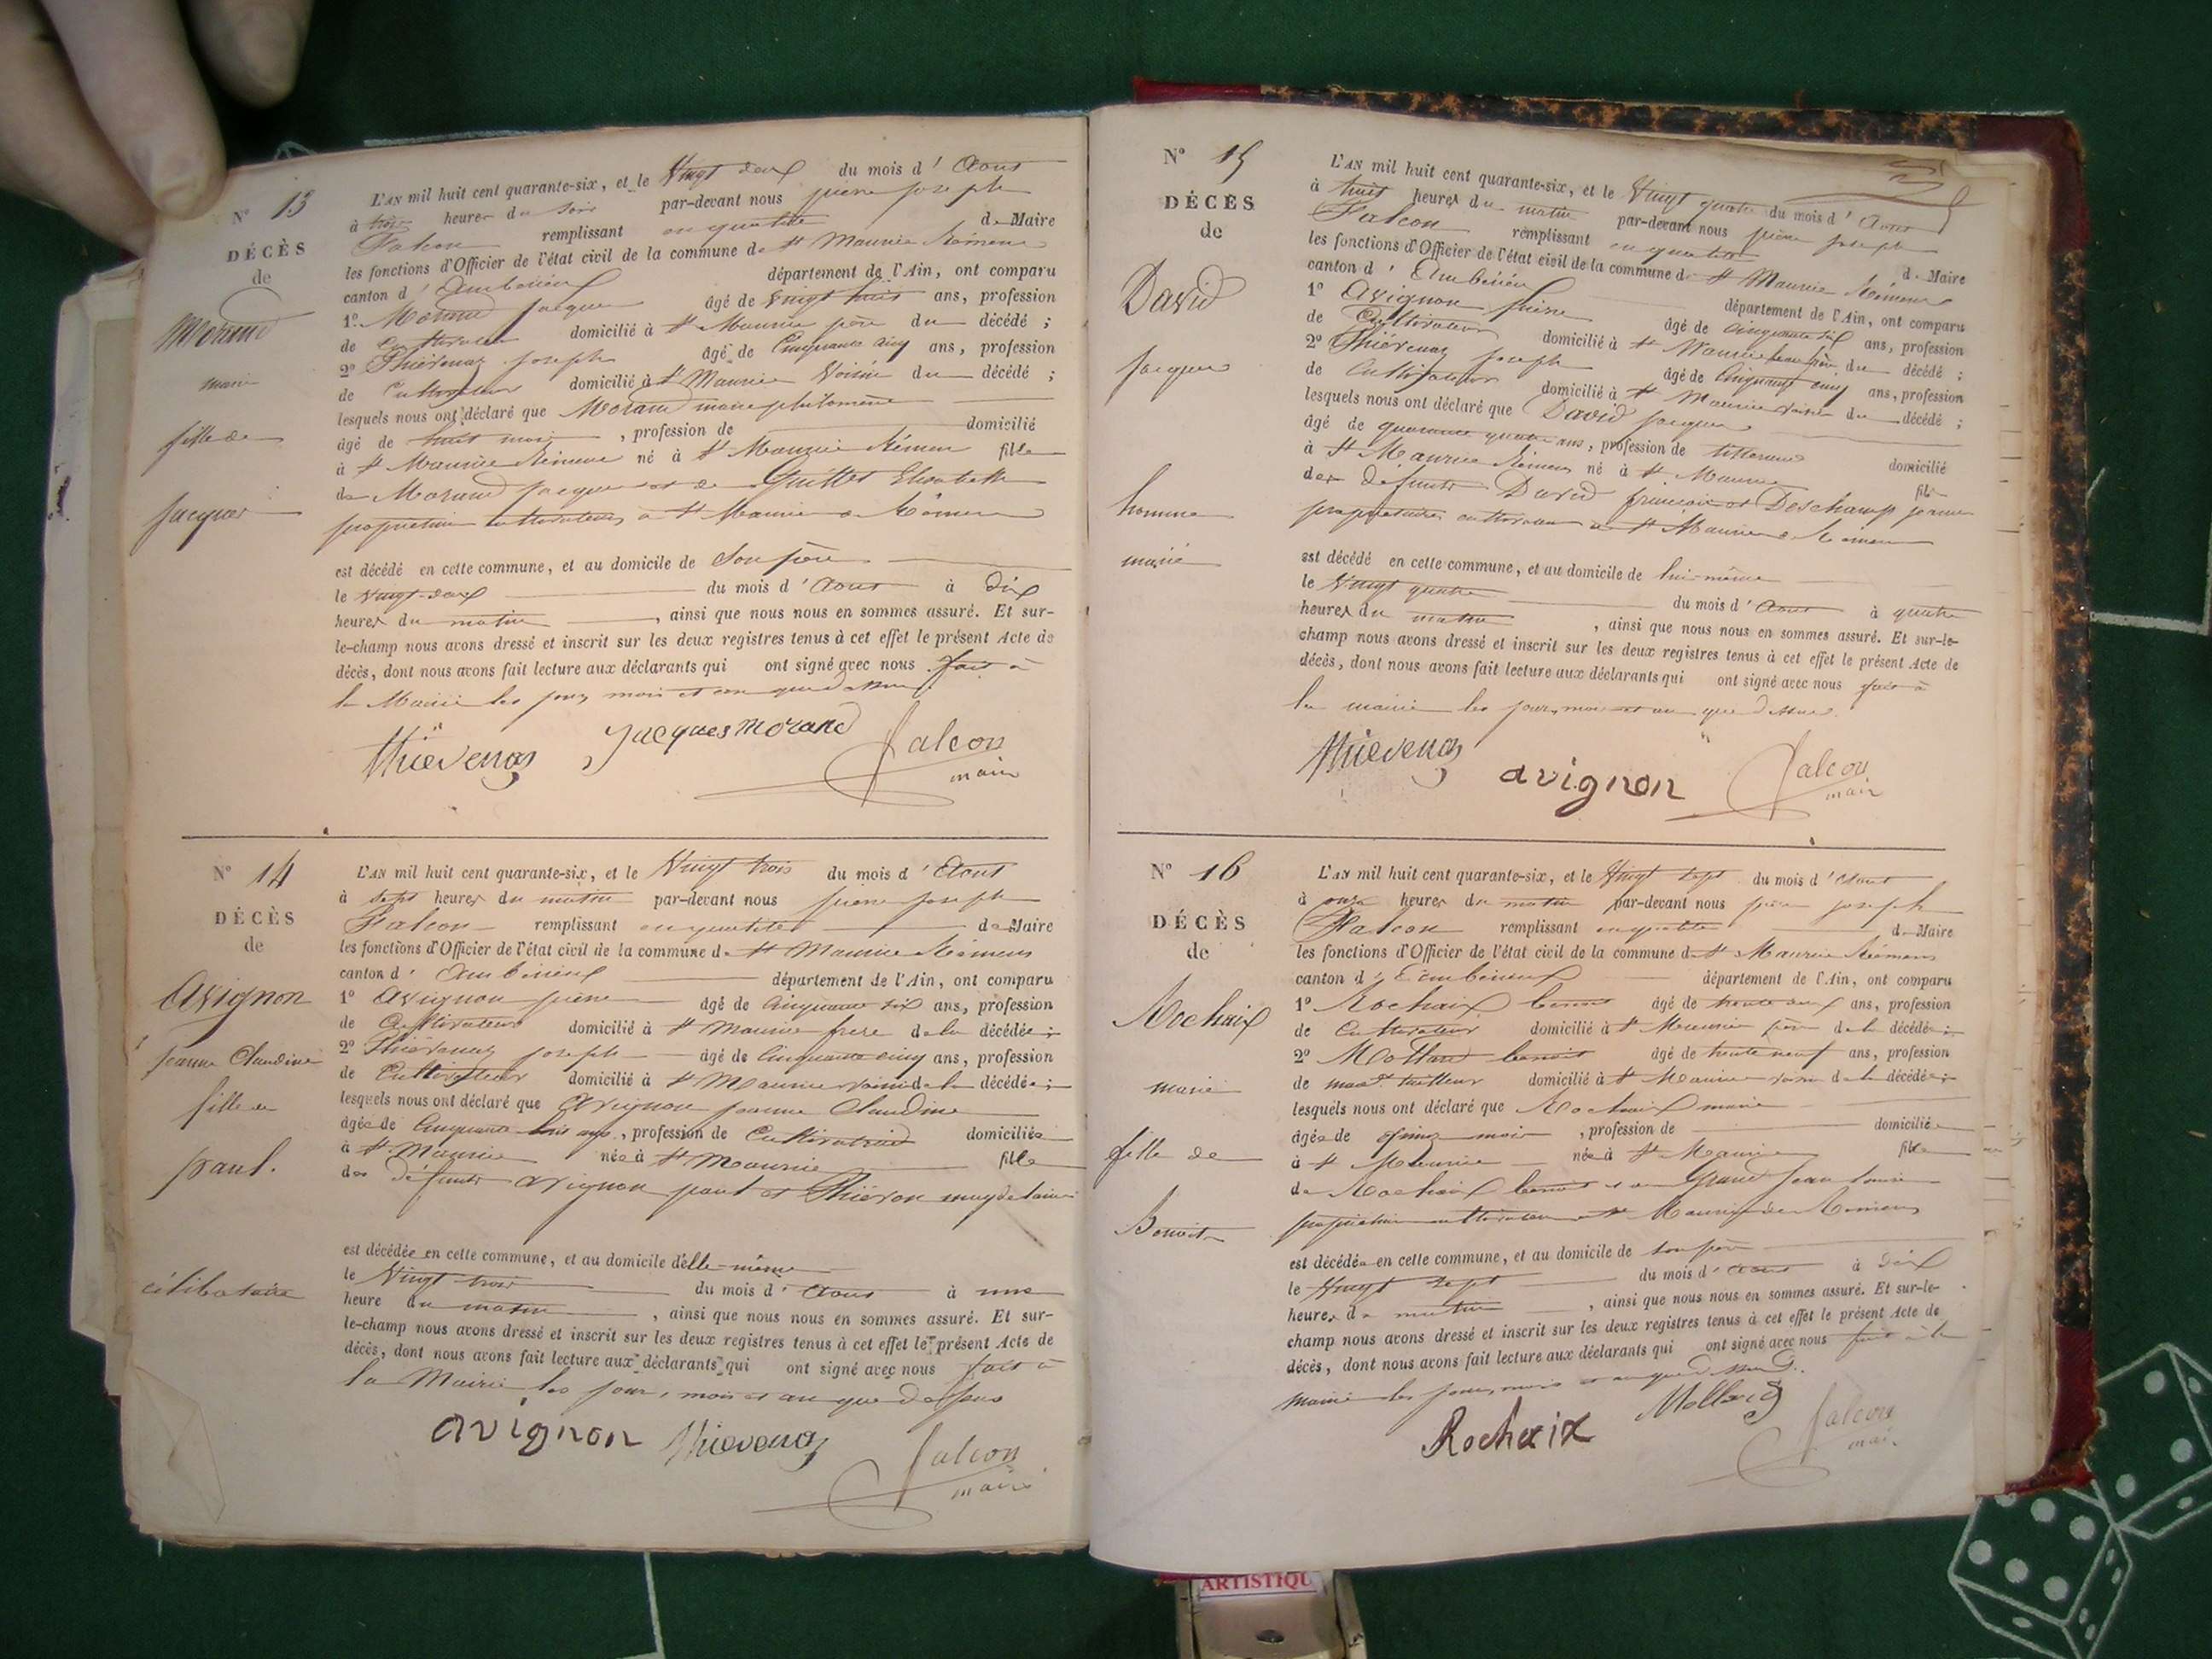 N° 13
DÉCÈS
de
Morand
marie
fille de
Jacques
L'AN mil huit cent quarante-six, et le Vingt deux du mois d'Aout
à trois heures du soir par-devant nous pierre joseph
Falcon remplissant en qualité de Maire
les fonctions d'Officier de l'état civil de la commune de St Maurice Rémens
canton d'Ambérieux département de l'Ain, ont comparu
1° Morand Jacques âgé de vingt huit ans, profession
de Cultivateur domicilié à St Maurice père du décédé ;
2° Thiévenaz joseph âgé de Cinquante cinq ans, profession
de Cultivateur domicilié à St Maurice Voisin du décédé ;
lesquels nous ont déclaré que Morand marie philomène
âgé de huit mois , profession de domicilié
à St Maurice Rémens né à St Maurice Rémens fille
de Morand jacques et de Guillet Elisabeth
propriétaires cultivateurs à St Maurice de Rémens
est décédé en cette commune, et au domicile de Son père
le vingt-deux du mois d'Aout à dix
heures du matin , ainsi que nous nous en sommes assuré. Et sur-
le-champ nous avons dressé et inscrit sur les deux registres tenus à cet effet le présent Acte de
décès, dont nous avons fait lecture aux déclarants qui ont signé avec nous fait à
la Mairie les jour, mois et an que dessus
Thievenaz Jacques morand falcon
maire
N° 14
DÉCÈS
de
Avignon
jeanne Claudine
fille de
paul.
célibataire
L'AN mil huit cent quarante-six, et le Vingt trois du mois d'Aout
à sept heures du matin par-devant nous pierre joseph
Falcon remplissant en qualité de Maire
les fonctions d'Officier de l'état civil de la commune de St Maurice Rémens
canton d'Ambérieux département de l'Ain, ont comparu
1° Avignon pierre âgé de Cinquante six ans, profession
de Cultivateur domicilié à St Maurice frere de la décédée ;
2° Thiévenaz joseph âgé de Cinquante cinq ans, profession
de Cultivateur domicilié à St Maurice voisin de la décédée ;
lesquels nous ont déclaré que Avignon jeanne Claudine
âgée de Cinquante trois ans , profession de Cultivatrice domiciliée
à St Maurice née à St Maurice fille
des défunts avignon paul et Thiévon magdelaine
est décédée en cette commune, et au domicile d'elle-même
le Vingt trois du mois d'Aout à une
heure du matin , ainsi que nous nous en sommes assuré. Et sur-
le-champ nous avons dressé et inscrit sur les deux registres tenus à cet effet le présent Acte de
décès, dont nous avons fait lecture aux déclarants qui ont signé avec nous fait à
la Mairie les jour, mois et an que dessus
avignon Thievenaz falcon
maire
N° 15
DÉCÈS
de
David
jacques
homme
marié
L'AN mil huit cent quarante-six, et le Vingt quatre du mois d'Aout
à huit heures du matin par-devant nous pierre joseph
Falcon remplissant en qualité de Maire
les fonctions d'Officier de l'état civil de la commune de St Maurice Rémens
canton d'Ambérieu département de l'Ain, ont comparu
1° Avignon pierre âgé de cinquante six ans, profession
de Cultivateur domicilié à St Maurice beau frère du décédé ;
2° Thiévenaz joseph âgé de Cinquante cinq ans, profession
de Cultivateur domicilié à St Maurice voisin du décédé ;
lesquels nous ont déclaré que David jacques
âgé de quarante quatre ans, profession de domicilié
à St Maurice Rémens né à St Maurice fils
des défunts David françois et Deschamp jeanne
propriétaires cultivateurs à St Maurice de Rémens
est décédé en cette commune, et au domicile de lui-même
le Vingt quatre du mois d'Aout à quatre
heures du matin , ainsi que nous nous en sommes assuré. Et sur-le-
champ nous avons dressé et inscrit sur les deux registres tenus à cet effet le présent Acte de
décès, dont nous avons fait lecture aux déclarants qui ont signé avec nous fait à
la mairie les jour, mois et an que dessus.
Thievenaz avignon falcon
maire
N° 16
DÉCÈS
de
Rochaix
marie
fille de
Benoit
L'AN mil huit cent quarante-six, et le Vingt sept du mois d'Aout
à onze heures du matin par-devant nous pierre joseph
Falcon remplissant en qualité de Maire
les fonctions d'Officier de l'état civil de la commune de St Maurice Rémens
canton d'Ambérieux département de l'Ain, ont comparu
1° Rochaix benoit âgé de trente deux ans, profession
de Cultivateur domicilié à St Maurice père de la décédée ;
2° Mollard benoit âgé de trente neuf ans, profession
de tailleur domicilié à St Maurice voisin de la décédée ;
lesquels nous ont déclaré que Rochaix marie
âgée de quinze mois , profession de domiciliée
à St Maurice née à St Maurice fille
de Rochaix benoit et de Grand jean louise
propriétaires cultivateurs à St Maurice de Rémens
est décédée en cette commune, et au domicile de son père
le Vingt sept du mois d'Aout à dix
heures du matin , ainsi que nous nous en sommes assuré. Et sur-le-
champ nous avons dressé et inscrit sur les deux registres tenus à cet effet le présent Acte de
décès, dont nous avons fait lecture aux déclarants qui ont signé avec nous fait à la
mairie les jour, mois et an que dessus.
Rochaix Mollard falcon
maire
ARTISTIQU